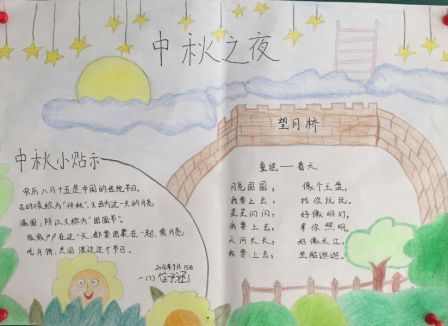 中秋之夜
望月桥
中秋小贴示
农历八月十五是中国的传统节日,
古时候称为“仲秋”,又因为这一天的月亮
满圆,所以又称为“团圆节”。
家家户户在这一天,都要团聚在一起,赏月亮
吃月饼,共同渡过这个节日。
2016年9月15日
一(1)
童谣——看天
月亮圆圆, 像个玉盘,
我要上去, 找你玩玩。
星星闪闪, 好像明灯,
我要上去, 拿你照明。
天河长长, 好像长江,
我要上去, 坐船逛逛。